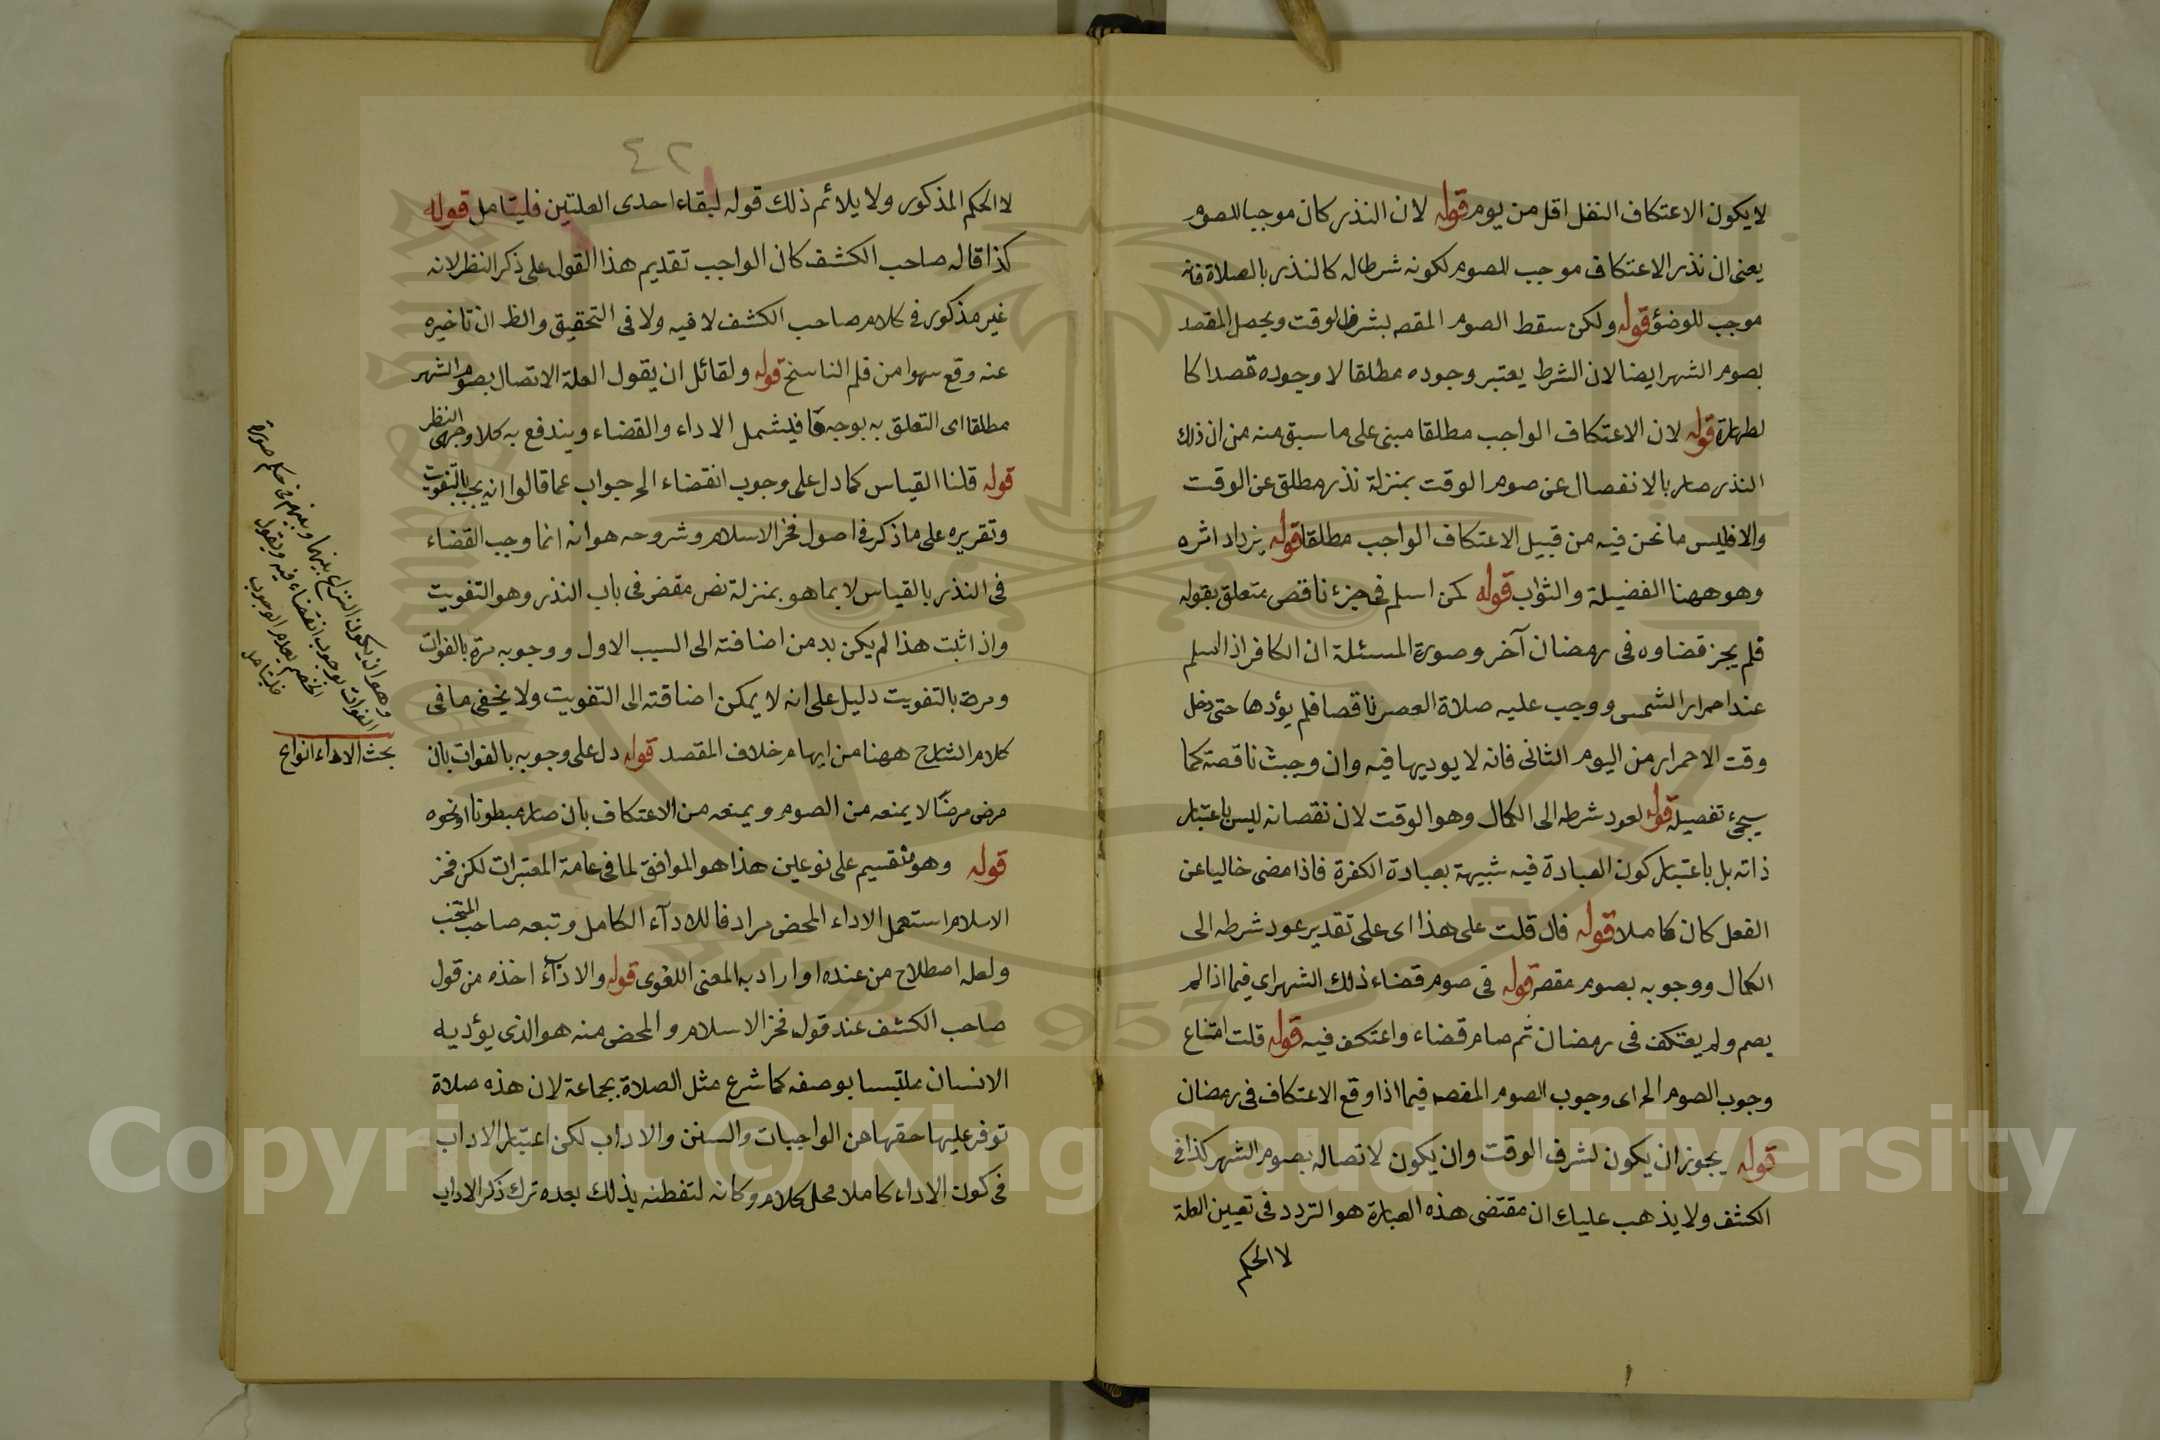 لا يكون الاعتكاف النفل اقل من يوم قوله لان النذر كان موجبا للصوم
يعنى ان نذر الاعتكاف موجب للصوم لكونه شرطا له كالنذر بالصلاة فانه
موجب للوضؤ قوله ولكن سقط الصوم المقصـ بشرف الوقت ويحصل المقصد
بصوم الشهر ايضا لان الشرط يعتبر وجوده مطلقا لا وجوده قصدا كا
لطهارة قوله لان الاعتكاف الواجب مطلقا مبنى على ما سبق منه من ان ذلك
النذر صار بالانفصال عن صوم الوقت بمنزلة نذر مطلق عن الوقت
والا فليس ما نحن فيه من قبيل الاعتكاف الواجب مطلقا قوله يزداد اثره
وهو ههنا الفضيلة والثواب قوله كمن اسلم فى جزء ناقص متعلق بقوله
فلم يجز قضاوه فى رمضان آخر وصورة المسئلة ان الكافر اذا اسلم
عند احمرار الشمس ووجب عليه صلاة العصر ناقصا فلم يؤدها حتى دخل
وقت الاحمرار من اليوم الثانى فانه لا يوديها فيه وان وجبت ناقصة كما
سيجىء تفصيله قوله لعود شرطه الى الكمال وهو الوقت لان نقصانه ليس باعتبار
ذاته بل باعتبار كون العبادة فيه شبيهة بعبادة الكفرة فاذا مضى خاليا عن
الفعل كان كاملا قوله فان قلت على هذا اى على تقدير عود شرطه الى
الكمال ووجوبه بصوم مقصـ قوله فى صوم قضاء ذلك الشهر اى فيما اذا لم
يصم ولم يعتكف فى رمضان ثم صام قضاء واعتكف فيه قوله قلت امتناع
وجوب الصوم الخ اى وجوب الصوم المقصـ فيما اذا وقع الاعتكاف فى رمضان
قوله يجوز ان يكون لشرف الوقت وان يكون لاتصاله بصوم الشهر كذا فى
الكشف ولا يذهب عليك ان مقتضى هذه العبارة هو التردد فى تعيين العلة
لا الحكم
٤٢
لا الحكم المذكور ولا يلائم ذلك قوله لبقاء احدى العلتين فليتامل قوله
كذا قاله صاحب الكشف كان الواجب تقديم هذا القول على ذكر النظر لانه
غير مذكور فى كلام صاحب الكشف لا فيه ولا فى التحقيق والظـ ان تاخيره
عنه وقع سهوا من قلم الناسخ قوله ولقائل ان يقول العلة الاتصال بصوم الشهر
مطلقا اى التعلق به بوجه ما فيشمل الاداء والقضاء ويندفع به كلا وجهى النظر
قوله قلنا القياس كما دل على وجوب انقضاء الخ جواب عما قالوا انه يجب بالتفويت
وتقريره على ما ذكر فى اصول فخر الاسلام وشروحه هو انه انما وجب القضاء
فى النذر بالقياس لا بما هو بمنزلة نص مقض فى باب النذر وهو التفويت
واذ اثبت هذا لم يكن بد من اضافته الى السبب الاول ووجوبه مرة بالفوات
ومرة بالتفويت دليل على انه لا يمكن اضافته الى التفويت ولا يخفى ما فى
كلام الشارح ههنا من ايهام خلاف المقصد قوله دل على وجوبه بالفوات بان
مرض مرضا لا يمنعه من الصوم ويمنعه من الاعتكاف بان صار مبطونا او نحوه
قوله وهو منقسم على نوعين هذا هو الموافق لما فى عامة المعتبرات لكن فخر
الاسلام استعمل الاداء المحض مرادفا للاداء الكامل وتبعه صاحب المنتخب
ولعله اصطلاح من عنده او اراد به المعنى اللغوى قوله والاداء اخذه من قول
صاحب الكشف عند قول فخر الاسلام والمحض منه هو الذى يؤديه
الانسان ملتبسا بوصفه كما شرع مثل الصلاة بجماعة لان هذه صلاة
توفر عليها حقها من الواجبات والسنن والاداب لكن اعتبار الاداب
فى كون الاداء كاملا محل كلام وكانه لتفطنه بذلك بعده ترك ذكر الاداب
وهو ان يكون النزاع بينهما وبينهم فى حكم صورة
الفوات بوجوب انقضاء فيه ويقول
الخصم بعدم الوجوب
فليتامل
بحث الاداء انواع
Copyright © King Saud University
1957